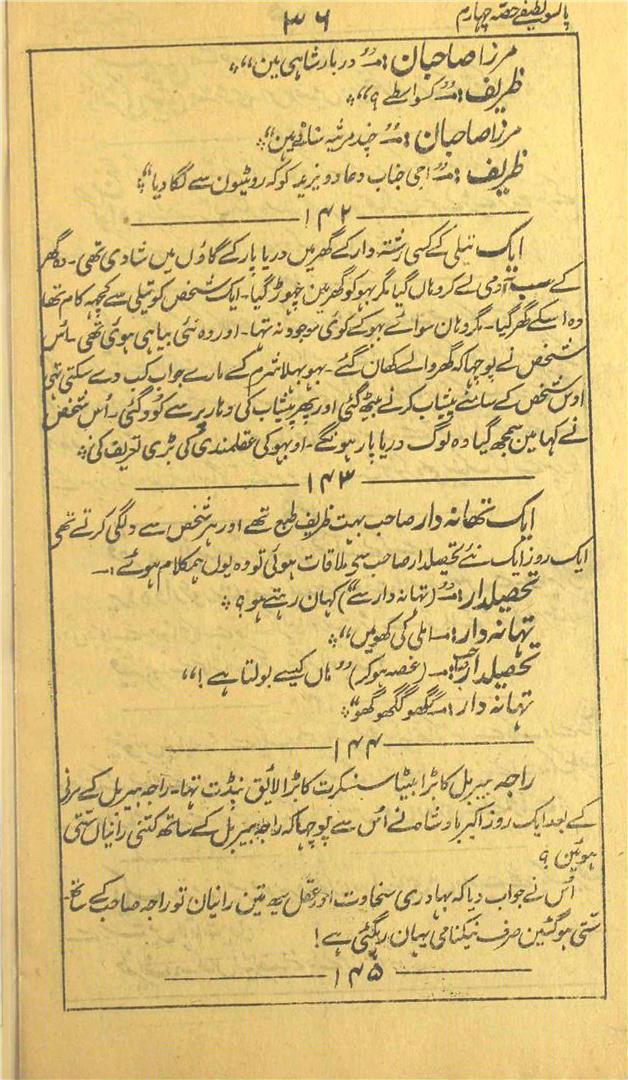 پانسو لطیفے حصہ چہارم
۳۶
مرزا صاحبان :— ”دربار شاہی مین“
ظریف :— ”کسواسطے ؟“
مرزا صاحبان :— ”چند مرثیہ سنانے ہین“
ظریف :— ”اجی جناب دعا دو یزید کو کہ روٹیون سے لگا دیا“
۱۴۲
ایک تیلی کے کسی رشتہ دار کے گھر مین دریا پار کے گاؤں میں شادی تھی - وہ گھر
کے سب آدمی لے کر وہاں گیا مگر بہو کو گھر مین چھوڑ گیا - ایک شخص کو تیلی سے کچھہ کام تھا
وہ اسکے گھر گیا - مگر وہان سوائے بہو کے کوئی موجود نہ تھا - اور وہ نئی بیاہی ہوئی تھی - اس
شخص نے پوچھا کہ گھر والے کہان گئے - بہو بہلا شرم کے مارے جواب کب دے سکتی تھی
اوس شخص کے سامنے پیشاب کرنے بیٹھ گئی اور پھر پیشاب کی دہار پر سے کود گئی - اُس شخص
نے کہا مین سمجھ گیا وہ لوگ دریا پار ہونگے - او بہو کی عقلمندی کی بڑی تعریف کی
۱۴۳
ایک تھانہ دار صاحب بہت ظریف طبع تھے اور ہر شخص سے دلگی کرتے تھی
ایک روز ایک نئے تحصیلدار صاحب سے ملاقات ہوئی تو وہ یوں ہمکلام ہوئے :—
تحصیلدار :— ”(تہانہ دار سے) کہان رہتے ہو ؟
تہانہ دار :— املی کی کھو میں“
تحصیلدار صاحب :— (غصہ ہوکر) ”ہاں کیسے بولتا ہے !“
تہانہ دار :— گھگھو گگھو گھو“
۱۴۴
راجہ بیربل کا بڑا بیٹا سنسکرت کا بڑا لائق پنڈت تہا - راجہ بیربل کے مرنی
کے بعد ایک روز اکبر بادشاہ نے اُس سے پوچہا کہ راجہ بیربل کے ساتھ کتنی رانیاں ستی
ہوئین ؟
اُس نے جواب دیا کہ بہادری سخاوت اور عقل یہ تین رانیان تو راجہ صاحب کے ساتھ
ستی ہوگئین صرف نیکنامی یہان رہگئی ہے !
۱۴۵